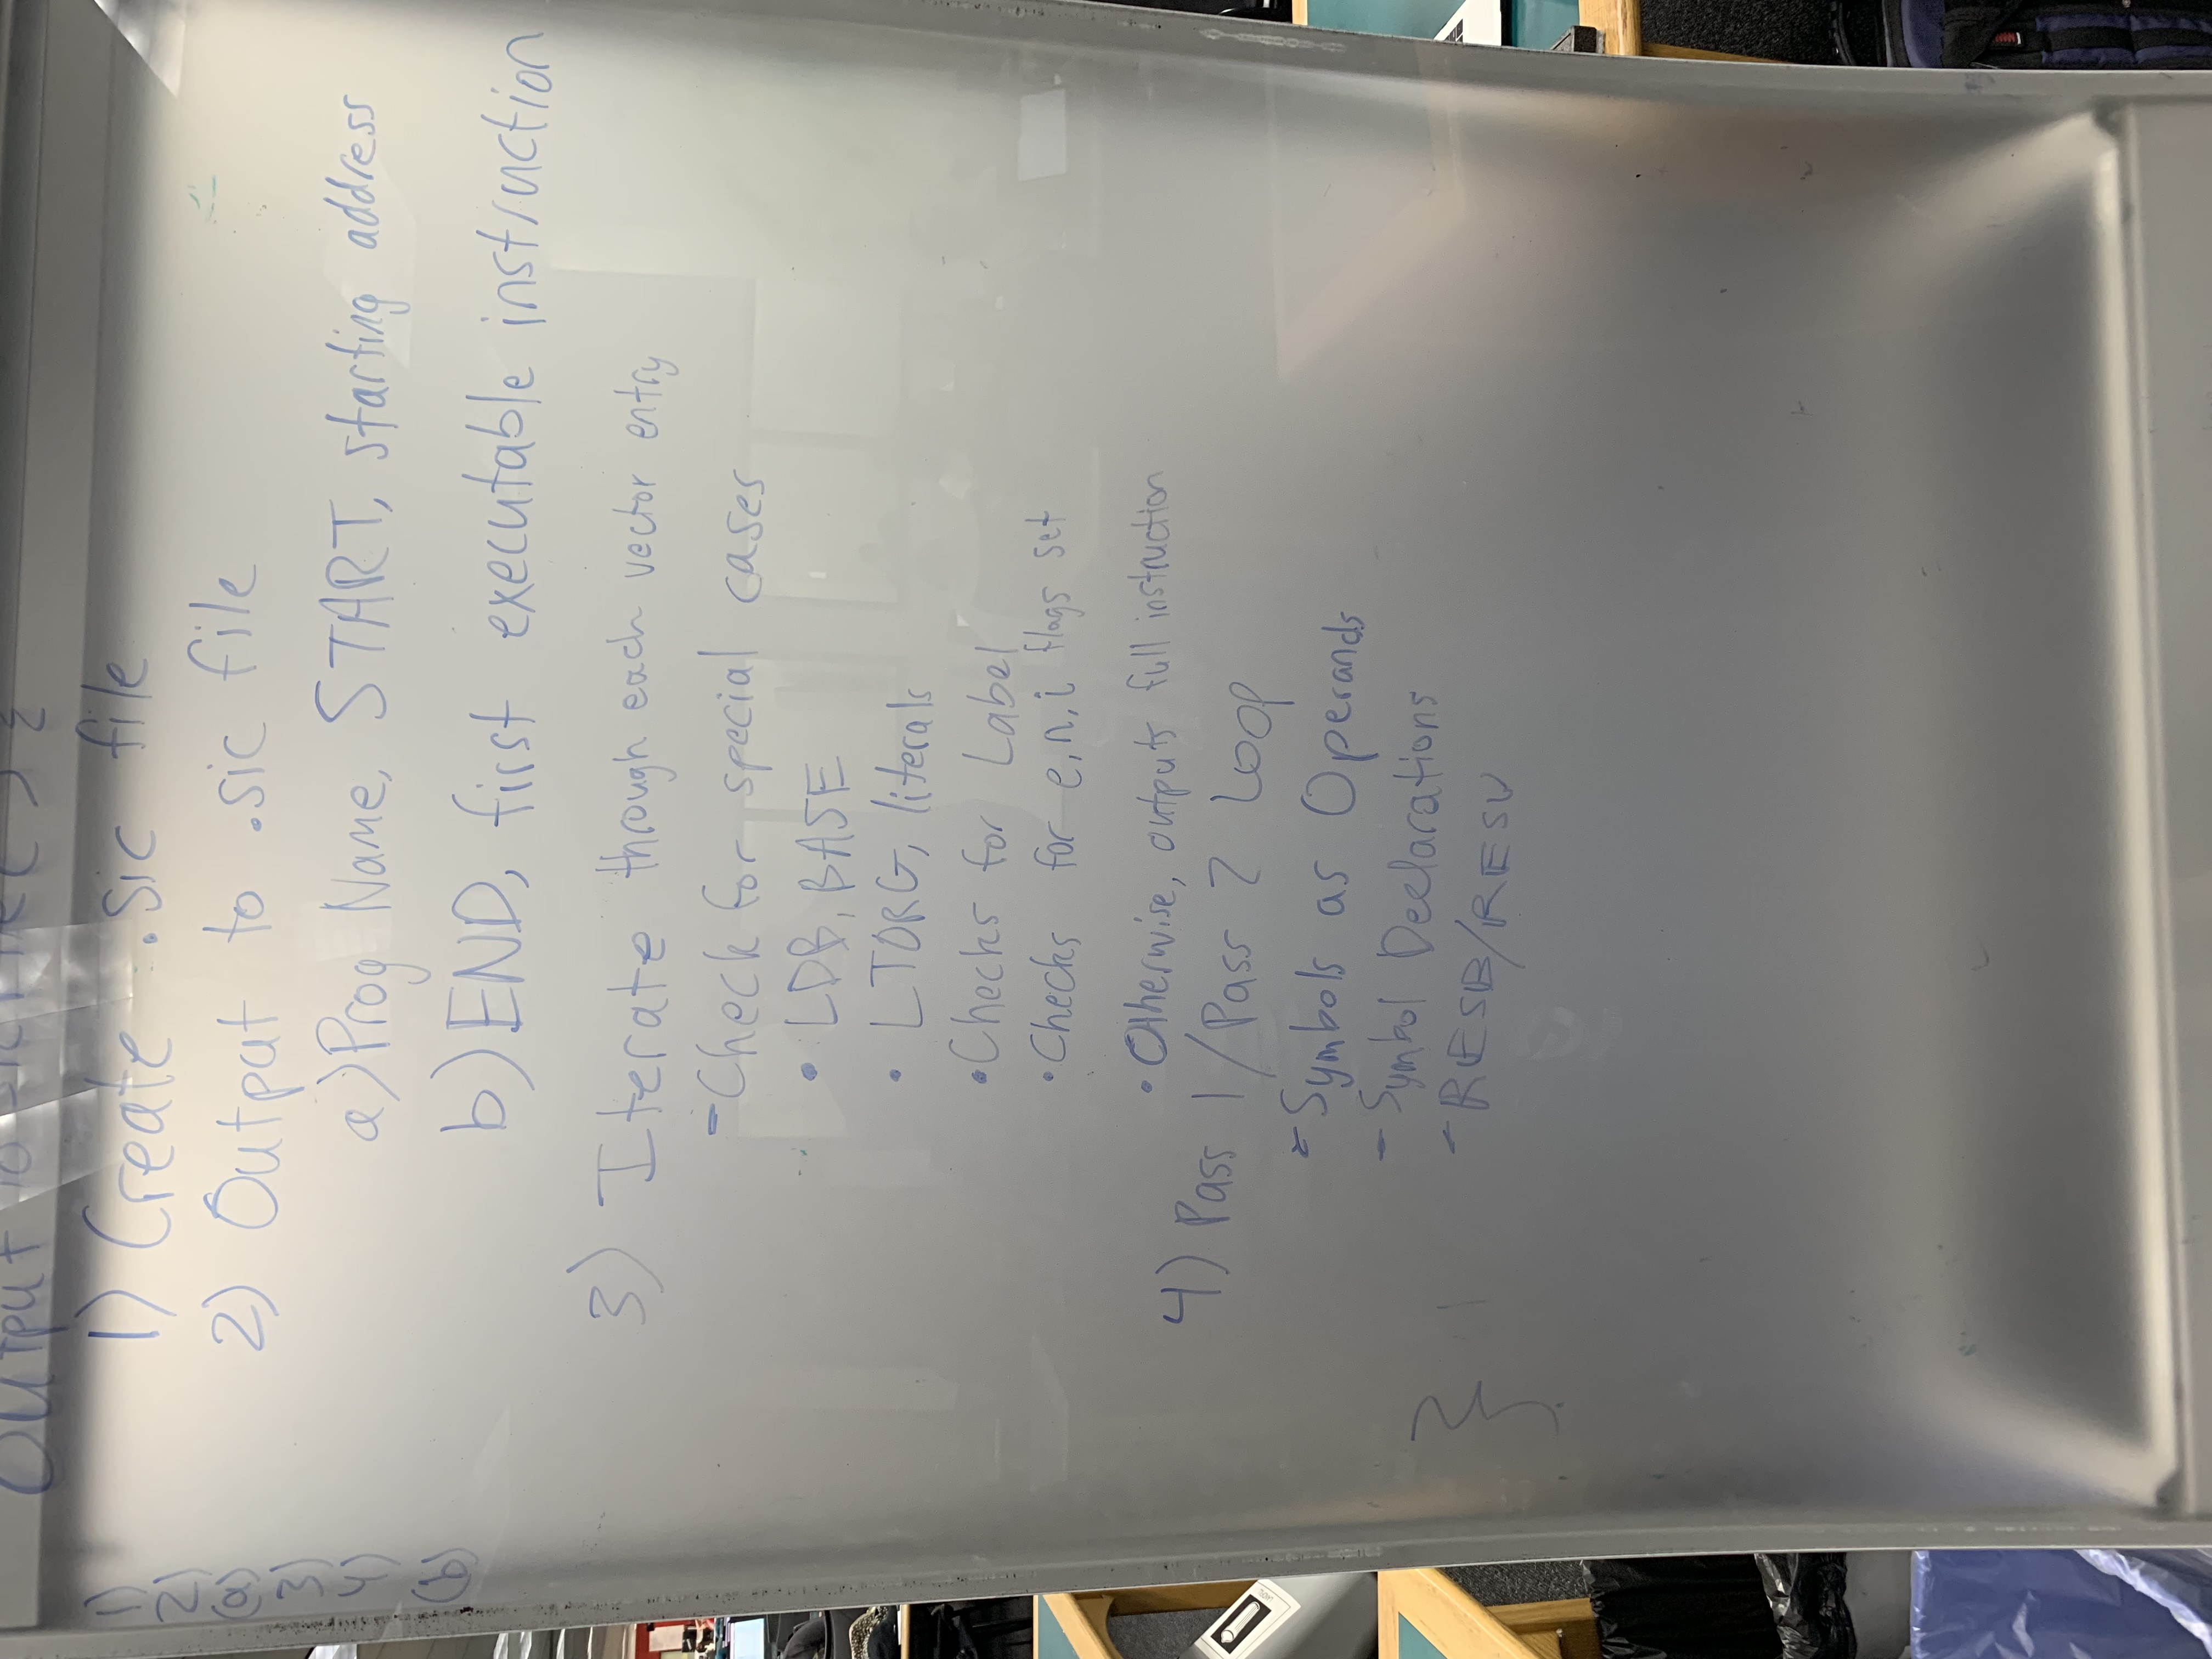 Output to sicFile() {
1) Create .sic file
2) Output to .sic file
a) Prog Name, START, starting address
b) END, first executable instruction
3) Iterate through each vector entry
- Check for special cases
• LDB, BASE
• LTORG, literals
• Checks for Label
• Checks for e,n,i flags set
• Otherwise, outputs full instruction
4) Pass 1/Pass 2 Loop
- Symbols as Operands
- Symbol Declarations
- RESB/RESW
}
1)
2)
(a)
3)
4)
(b)